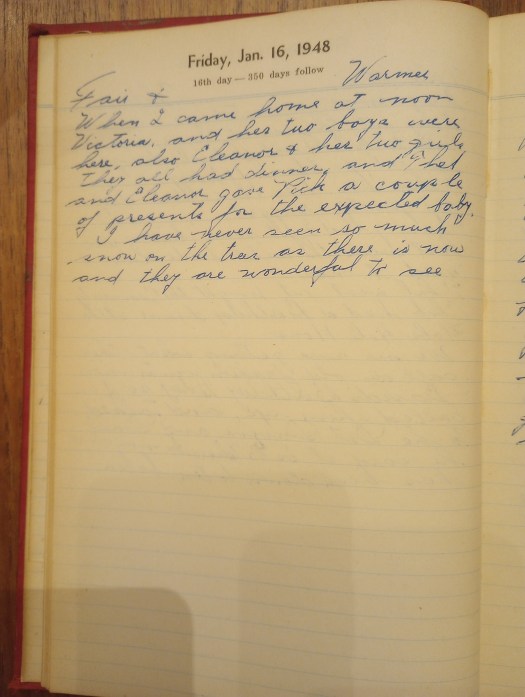 Friday, Jan. 16, 1948
16th day — 350 days follow
Fair & Warmer
When I came home at noon
Victoria, and her two boys were
here, also Eleanor & her two girls,
They all had dinner, and
and Eleanor gave Pick a couple
of presents for the expected baby.
I have never seen so much
snow on the trees as there is now
and they are wonderful to see